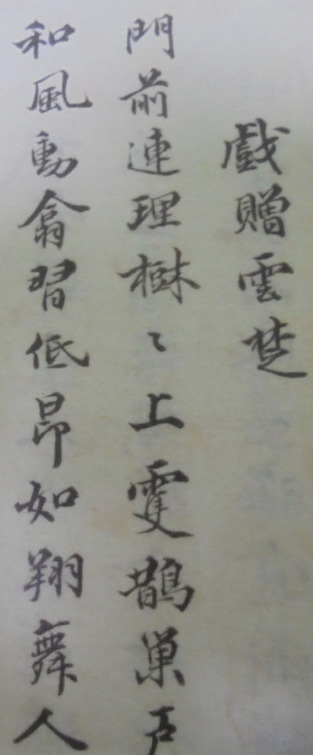 戲贈雲楚
門前連理樹〻上雙鵲巢
和風動翕習低昂如翔舞人